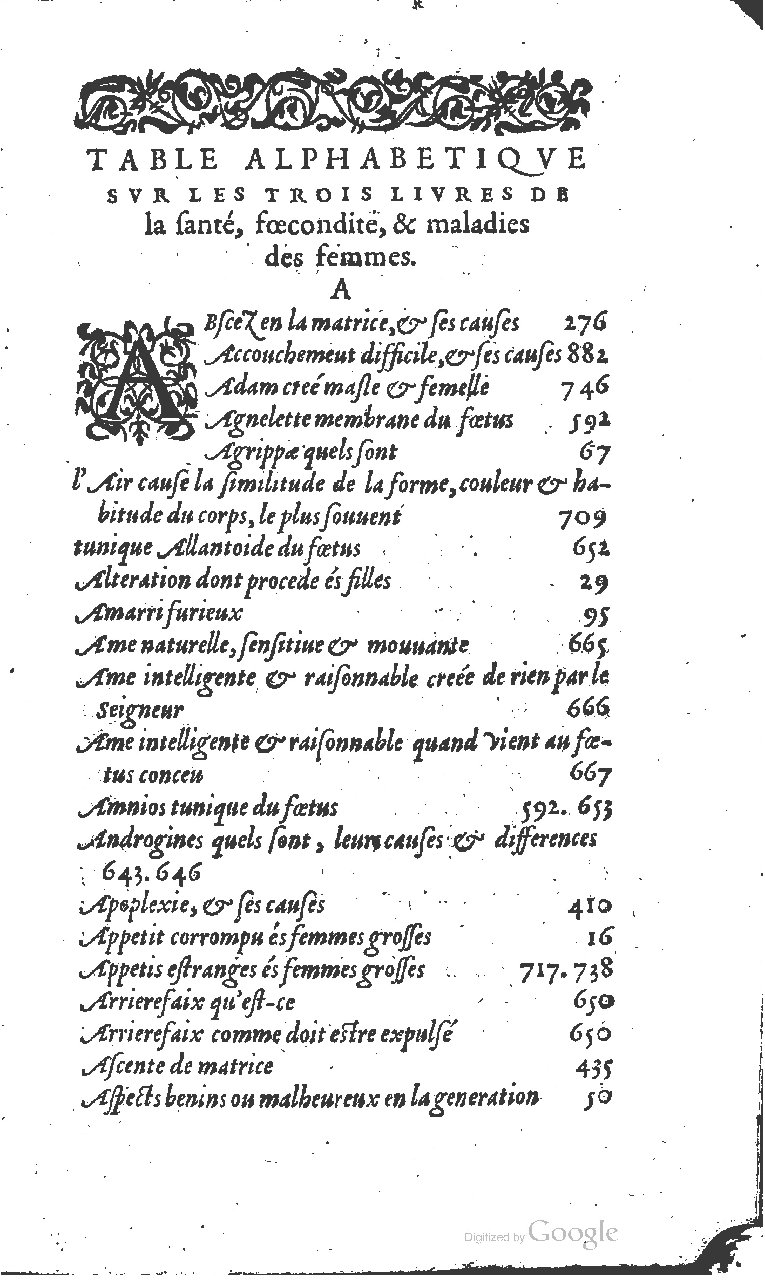 TABLE ALPHABETIQVE
SVR LES TROIS LIVRES DE
la ſanté, fœcondité, & maladies
des femmes.
A
ABſcez en la matrice, & ſes cauſes 276
Accouchemeut difficile, & ſes cauſes 882
Adam creé maſle & femelle 746
Agnelette membrane du fœtus 592
Agrippæ quels ſont 67
l'Air cauſe la ſimilitude de la forme, couleur & ha-
bitude du corps, le plus ſouuent 709
tunique Allantoide du fœtus 652
Alteration dont procede és filles 29
Amarri furieux 95
Ame naturelle, ſenſitiue & mouuante 665
Ame intelligente & raiſonnable creée de rien par le
Seigneur 666
Ame intelligente & raiſonnable quand vient au fœ-
tus conceu 667
Amnios tunique du fœtus 592. 653
Androgines quels ſont, leurs cauſes & differences
643. 646
Apoplexie, & ſes cauſes 410
Appetit corrompu és femmes groſſes 16
Appetis eſtranges és femmes groſſes 717. 738
Arrierefaix qu'eſt-ce 650
Arrierefaix comme doit eſtre expulſé 650
Aſcente de matrice 435
Aſpects benins ou malheureux en la generation 50
Digitized by Google